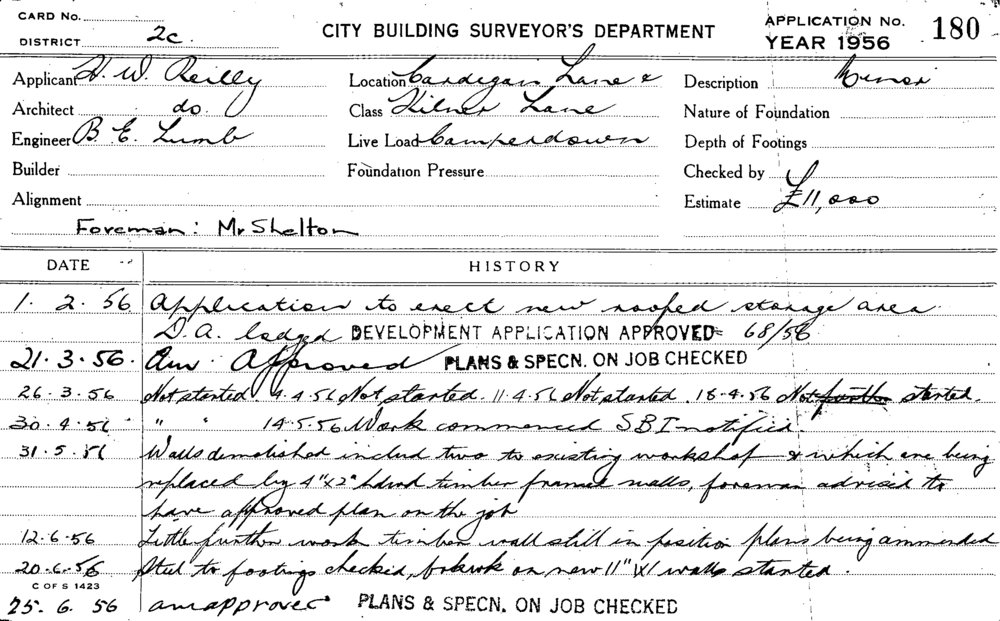 CARD No.
DISTRICT 2c
CITY BUILDING SURVEYOR'S DEPARTMENT
APPLICATION No. 180
YEAR 1956
Applicant H. W. Reilly
Location Cardigan Lane &
Description Minor
Architect do.
Class Hilner Lane
Nature of Foundation
Engineer B. E. Lumb
Live Load Camperdown
Depth of Footings
Builder
Foundation Pressure
Checked by
Alignment
Estimate £11,000
Foreman: Mr Shelton
DATE HISTORY
1. 2. 56 Application to erect new roofed storage area
D.A. lodged DEVELOPMENT APPLICATION APPROVED 68/56
21. 3. 56. Am Approved PLANS & SPECN. ON JOB CHECKED
26. 3. 56 Not started 4.4.56 Not started. 11.4.56 Not started. 18.4.56 Not further started.
30. 4. 56 " " 14.5.56 Work commenced SBI notified
31. 5. 56 Walls demolished includ two to existing workshop & which are being
replaced by 4"x2" hdwd timber framed walls, foreman advised to
have approved plan on the job
12. 6. 56 Little further work timber wall still in position plans being ammended
20. 6. 56 Steel to footings checked, bkwork on new 11" walls started.
C OF S 1423
25. 6. 56 am approved PLANS & SPECN. ON JOB CHECKED